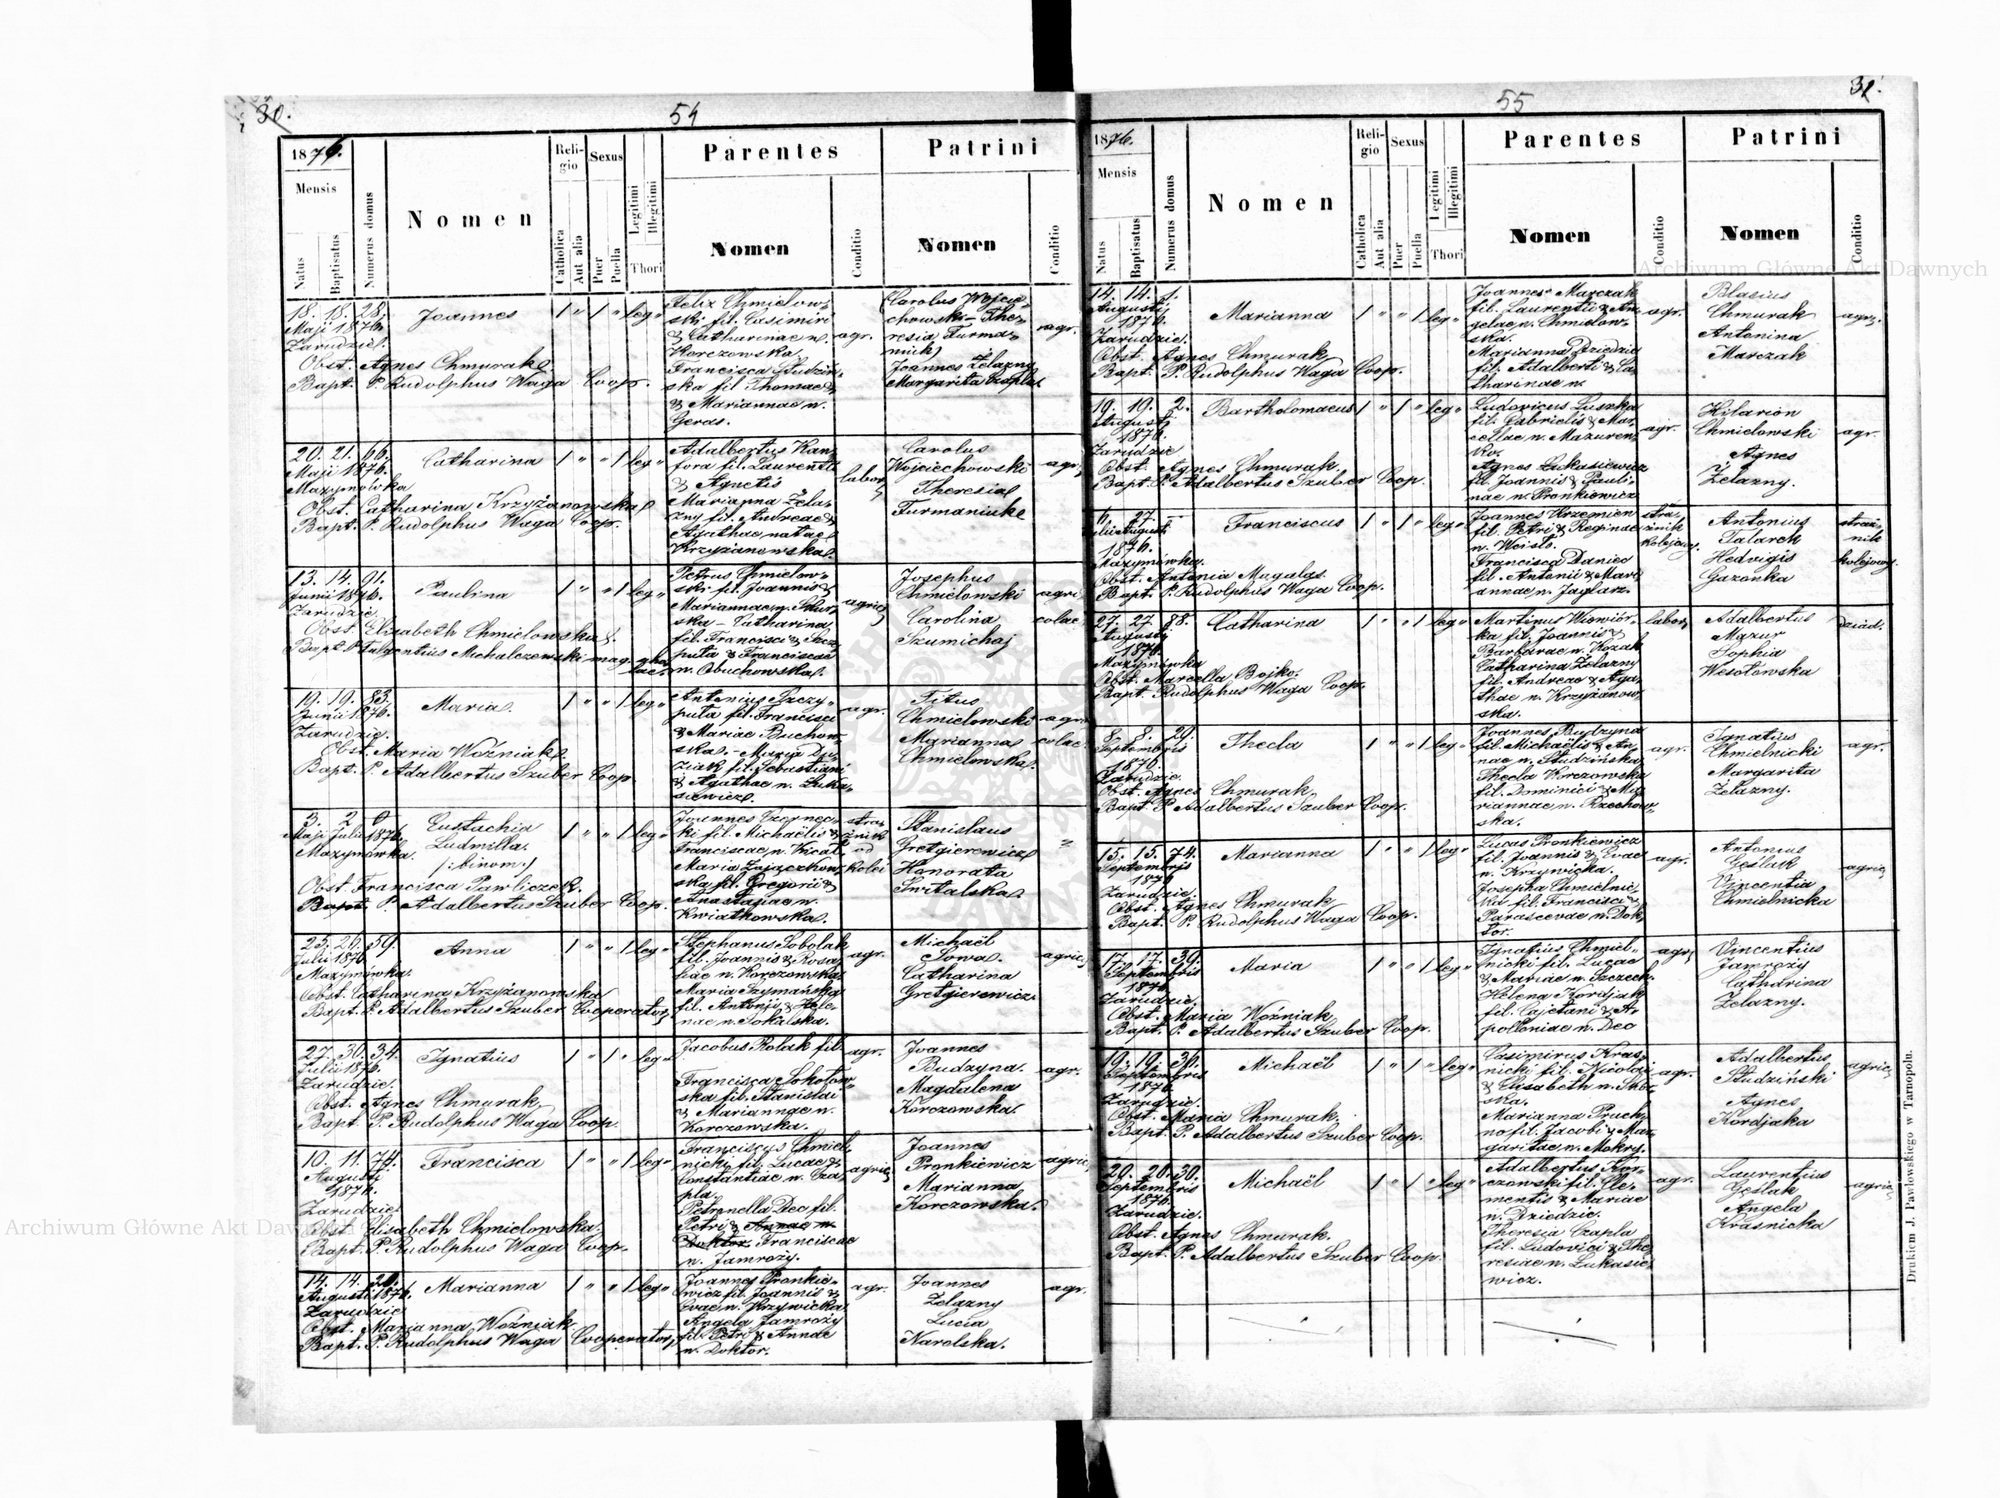 30.
54
1876.
Mensis
Natus
Baptisatus
Numerus domus
Nomen
Religio
Catholica
Aut alia
Sexus
Puer
Puella
Legitimi
Illegitimi
Thori
Parentes
Nomen
Conditio
Patrini
Nomen
Conditio
18. 18. 28.
Maji 1876.
Zarudzie.
Joannes
1 " 1 " leg.
Obst. Agnes Chmurak
Bapt. P. Rudolphus Waga Coop.
Felix Chmielow-
ski fil. Casimiri
& Catharinae n.
Korczowska,
Francisca Studziń-
ska fil. Thomae
& Mariannae n.
Geras.
agr.
Carolus Wojcie-
chowski – The-
resia Furma-
niuk)
Joannes Żelazny
Margarita Czapla
agr.
20. 21. 66.
Maji 1876.
Mazymówka
Catharina
1 " " 1 leg.
Obst. Catharina Krzyżanowska
Bapt. P. Rudolphus Waga Coop.
Adalbertus Kan-
fora fil. Laurentii
& Agnetis
Marianna Żela-
zny fil. Andreae &
Agathae natae
Krzyżanowska.
labor.
Carolus
Wojciechowski
Theresia
Furmaniuk
agr.
13. 14. 91.
Junii 1876.
Zarudzie
Paulina
1 " " 1 leg.
Obst. Elizabeth Chmielowska.
Bapt. P. Fulgentius Michalczewski
Petrus Chmielow-
ski fil. Joannis &
Mariannae n.
ska – Catharina
fil. Francisci &
puta & Franciscae
n. Obuchowska.
agric.
Josephus
Chmielowski
Carolina
Szumichaj
agri
colae
19. 19. 83.
Junii 1876.
Zarudzie.
Maria.
1 " " 1 leg.
Obst. Maria Woźniak
Bapt. P. Adalbertus Szuber Coop.
Antonius
puta fil. Francisci
& Mariae Buchow-
ska. – Maria Du-
ziak fil. Sebastiani
& Agathae n. Luka-
siewicz.
agr.
Titus
Chmielowski
Marianna
Chmielowska.
agri
colae
3. 2. 0
Maji Julii 1876.
Mazymówka.
Eustachia
Ludmilla.
/:binom:/
1 " " 1 leg.
Obst. Francisca Pawliczek.
Bapt. P. Adalbertus Szuber Coop.
Joannes Czernec-
ki fil. Michaëlis &
Franciscae n.
Maria Zajączkow-
ska fil. Gregorii &
Anastasiae n.
Kwiatkowska.
straż-
nik
od
kolei
Stanislaus
Gretgierewicz
Honorata
Switalska.
"
25. 26. 59.
Julii 1876.
Mazymówka.
Anna
1 " " 1 leg.
Obst. Catharina Krzyżanowska
Bapt. P. Adalbertus Szuber Cooperator
Stephanus Sobolak
fil. Joannis & Rosa-
liae n. Korczowska
Maria Szymańska
fil. Antonii & Hele-
nae n. Sokalska.
agr.
Michaël
Sowa.
Catharina
Gretgierewicz.
agric.
27. 30. 34.
Julii 1876.
Zarudzie.
Ignatius
1 " 1 " leg.
Obst. Agnes Chmurak
Bapt. P. Rudolphus Waga Coop.
Jacobus Rolak fil.
Francisca Sokołow-
ska fil. Stanislai
& Mariannae n.
Korczowska.
agr.
Joannes
Budzyna.
Magdalena
Korczowska.
agr.
10. 11. 74.
Augusti
1876.
Zarudzie
Francisca
1 " " 1 leg.
Obst. Elisabeth Chmielowska.
Bapt. P. Rudolphus Waga Coop.
Franciscus Chmiel-
nicki fil. Lucae &
Constantiae n. Cza-
pla.
Petronella Dec fil.
Petri & Annae n.
Doktor Franciscae
n. Jamroży.
agric.
Joannes
Pronkiewicz
Marianna
Korczowska.
agric.
14. 14. 29.
Augusti 1876.
Zarudzie
Marianna
1 " " 1 leg.
Obst. Marianna Woźniak
Bapt. P. Rudolphus Waga Cooperator
Joannes Pronkie-
wicz fil. Joannis &
Evae n. Krzywicka
Angela Jamroży
fil. Petri & Annae
n. Doktor.
agr.
Joannes
Żelazny
Lucia
Narolska.
agr.
55
31.
1876.
Mensis
Natus
Baptisatus
Numerus domus
Nomen
Religio
Catholica
Aut alia
Sexus
Puer
Puella
Legitimi
Illegitimi
Thori
Parentes
Nomen
Conditio
Patrini
Nomen
Conditio
14. 14. 1.
Augusti
1876.
Zarudzie.
Marianna
1 " " 1 leg.
Obst. Agnes Chmurak,
Bapt. P. Rudolphus Waga Coop.
Joannes Marczak
fil. Laurentii & An-
gelae n. Chmielow-
ska.
Marianna Dziedzic
fil. Adalberti & Ca-
tharinae n.
agr.
Blasius
Chmurak
Antonina
Marczak
agr.
19. 19. 2.
Augusti
1876.
Zarudzie
Bartholomaeus
1 " 1 " leg.
Obst. Agnes Chmurak.
Bapt. P. Adalbertus Szuber Coop.
Ludovicus Luszka
fil. Gabrielis & Mar-
cellae n. Mazuren-
ko.
Agnes Łukasiewicz
fil. Joannis & Pauli-
nae n. Pronkiewicz
agr.
Hilarion
Chmielowski
Agnes
Żelazny.
agr.
6. 27 –
Julii Augusti
1876.
Mazymówka.
Franciscus
1 " 1 " leg.
Obst. Antonia Magalas
Bapt. P. Rudolphus Waga Coop.
Joannes Krzemien
fil. Petri & Reginae
n. Weisło.
Francisca Daniec
fil. Antonii & Mari-
annae n.
straż-
nik
kolejowy.
Antonius
Talarek
Hedvigis
Gazonka
straż-
nik
kolejowy
27. 27. 88.
Augusti
1876.
Mazymówka
Catharina
1 " " 1 leg.
Obst. Marcella Bojko.
Bapt. Rudolphus Waga Coop.
Martinus Wiewiór-
ka fil. Joannis &
Barbarae n. Kozak
Catharina Żelazny
fil. Andreae & Aga-
thae n. Krzyżanow-
ska.
labor.
Adalbertus
Mazur
Sophia
Wesołowska
dziad.
8. 8. 29.
Septembris
1876.
Zarudzie.
Thecla
1 " " 1 leg.
Obst. Agnes Chmurak,
Bapt. P. Adalbertus Szuber Coop.
Joannes Budzyna
fil. Michaëlis & An-
nae n. Studzińska,
Thecla Korczowska
fil. Dominici & Ma-
riannae n. Rzechow-
ska.
agr.
Ignatius
Chmielnicki
Margarita
Żelazny.
agr.
15. 15. 74.
Septembris
1876
Zarudzie.
Marianna
1 " " 1 leg.
Obst. Agnes Chmurak
Bapt. P. Rudolphus Waga Coop.
Lucas Pronkiewicz
fil. Joannis & Evae
n. Krzywicka.
Josepha Chmielnic-
ka fil. Francisci &
Parascevae n. Dok-
tor.
agr.
Antonius
Geślak
Vincentia
Chmielnicka
agric.
17. 17. 39.
Septembris
1876.
Zarudzie.
Maria
1 " " 1 leg.
Obst. Maria Woźniak,
Bapt. P. Adalbertus Szuber Coop.
Ignatius Chmiel-
nicki fil. Lucae
& Mariae n. Szczech-
Helena Kordjak
fil. Cajetani & A-
polloniae n. Dec
agr.
Vincentius
Jamroży
Catharina
Żelazny.
19. 19. 30.
Septembris
1876.
Zarudzie.
Michaël
1 " 1 " leg.
Obst. Maria Chmurak.
Bapt. P. Adalbertus Szuber Coop.
Casimirus Kras-
nicki fil. Nicolai
& Elisabeth n.
ska.
Marianna Pruch-
no fil. Jacobi & Mar-
garitae n. Mokry.
agr.
Adalbertus
Studziński
Agnes
Kordjaka
agric.
20. 20. 30.
Septembris
1876.
Zarudzie.
Michaël
1 " 1 " leg.
Obst. Agnes Chmurak.
Bapt. P. Adalbertus Szuber Coop.
Adalbertus Kor-
czowski fil. Cle-
mentis & Mariae
n. Dziedzic.
Theresia Czapla
fil. Ludovici & The-
resiae n. Lukasie-
wicz.
agr.
Laurentius
Geślak
Angela
Krasnicka
agric.
Drukiem J. Pawłowskiego w Tarnopolu.
Archiwum Główne Akt Dawnych
Archiwum Główne Akt Dawnych